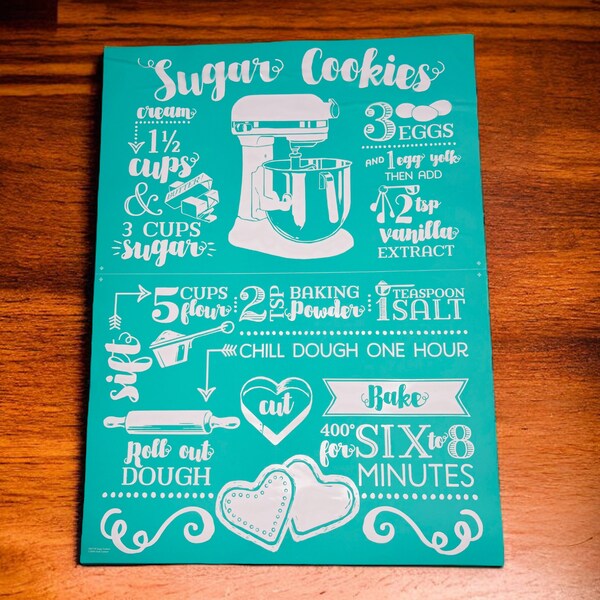 Sugar Cookies
cream
1½
cups
BUTTER
&
3 CUPS
sugar
3 EGGS
AND 1 egg yolk
THEN ADD
2 tsp
vanilla
EXTRACT
sift
5 CUPS flour
2 TSP BAKING Powder
1 TEASPOON SALT
CHILL DOUGH ONE HOUR
Roll out
DOUGH
cut
Bake
400° for SIX to 8
MINUTES